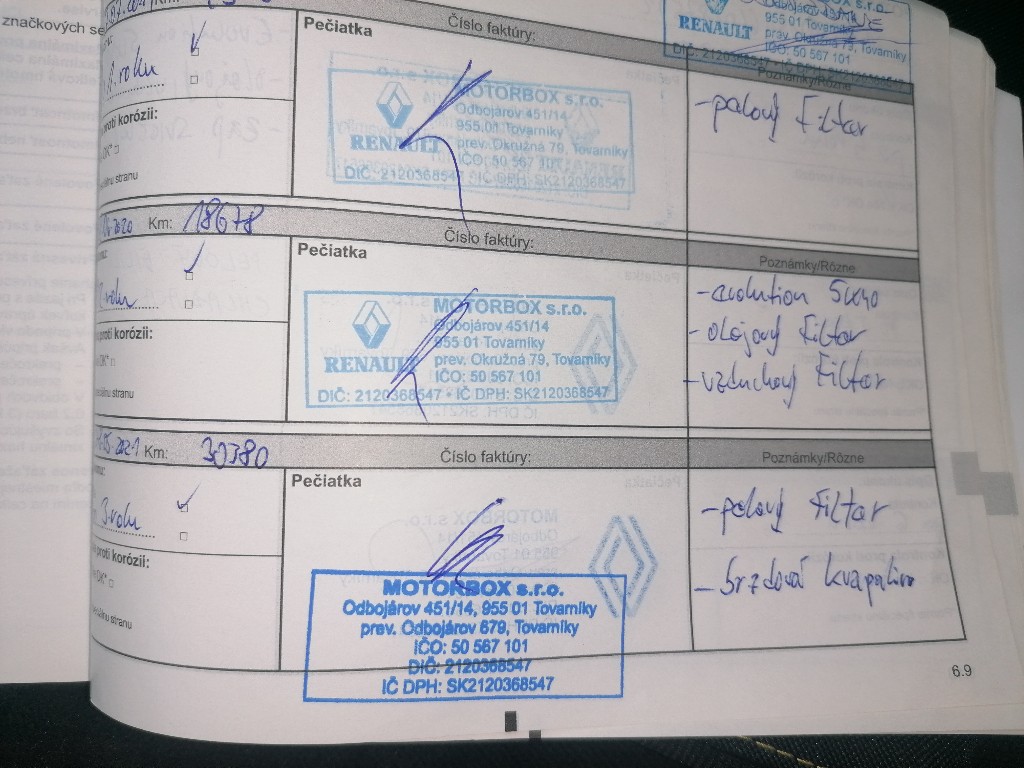 značkových se
Pečiatka
Číslo faktúry:
RENAULT
955 01 Tovarníky
prev. Okružná 79, Tovarníky
IČO: 50 567 101
Poznámky/Rôzne
roku
proti korózii:
OK* □
MOTORBOX s.r.o.
Odbojárov 451/14
955 01 Tovarníky
prev. Okružná 79, Tovarníky
RENAULT
IČO: 50 567 101
DIČ: 2120368547 • IČ DPH: SK2120368547
- peľový Filter
2020 Km: 18678
Číslo faktúry:
Pečiatka
Poznámky/Rôzne
roku
proti korózii:
OK* □
MOTORBOX s.r.o.
Odbojárov 451/14
955 01 Tovarníky
RENAULT
prev. Okružná 79, Tovarníky
IČO: 50 567 101
DIČ: 2120368547 • IČ DPH: SK2120368547
- evolution 5W40
- olejový Filter
- vzduchový Filter
05 2021 Km: 30380
Číslo faktúry:
Pečiatka
Poznámky/Rôzne
3.roku
proti korózii:
OK* □
MOTORBOX s.r.o.
Odbojárov 451/14, 955 01 Tovarníky
prev. Odbojárov 679, Tovarníky
IČO: 50 567 101
DIČ: 2120368547
IČ DPH: SK2120368547
- peľový Filter
- brzdová kvapalina
6.9